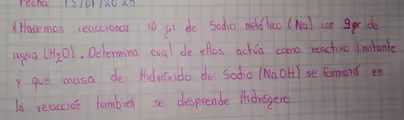 Fecha 15/01/2026
¿Hacemos reaccionar 10 gr de Sodio metálico (Na) con 9gr de
agua (H2O). Determina cual de ellos actúa como reactivo limitante
y que masa de Hidróxido de Sodio (NaOH) se formará en
la reacción también se desprende Hidrógeno